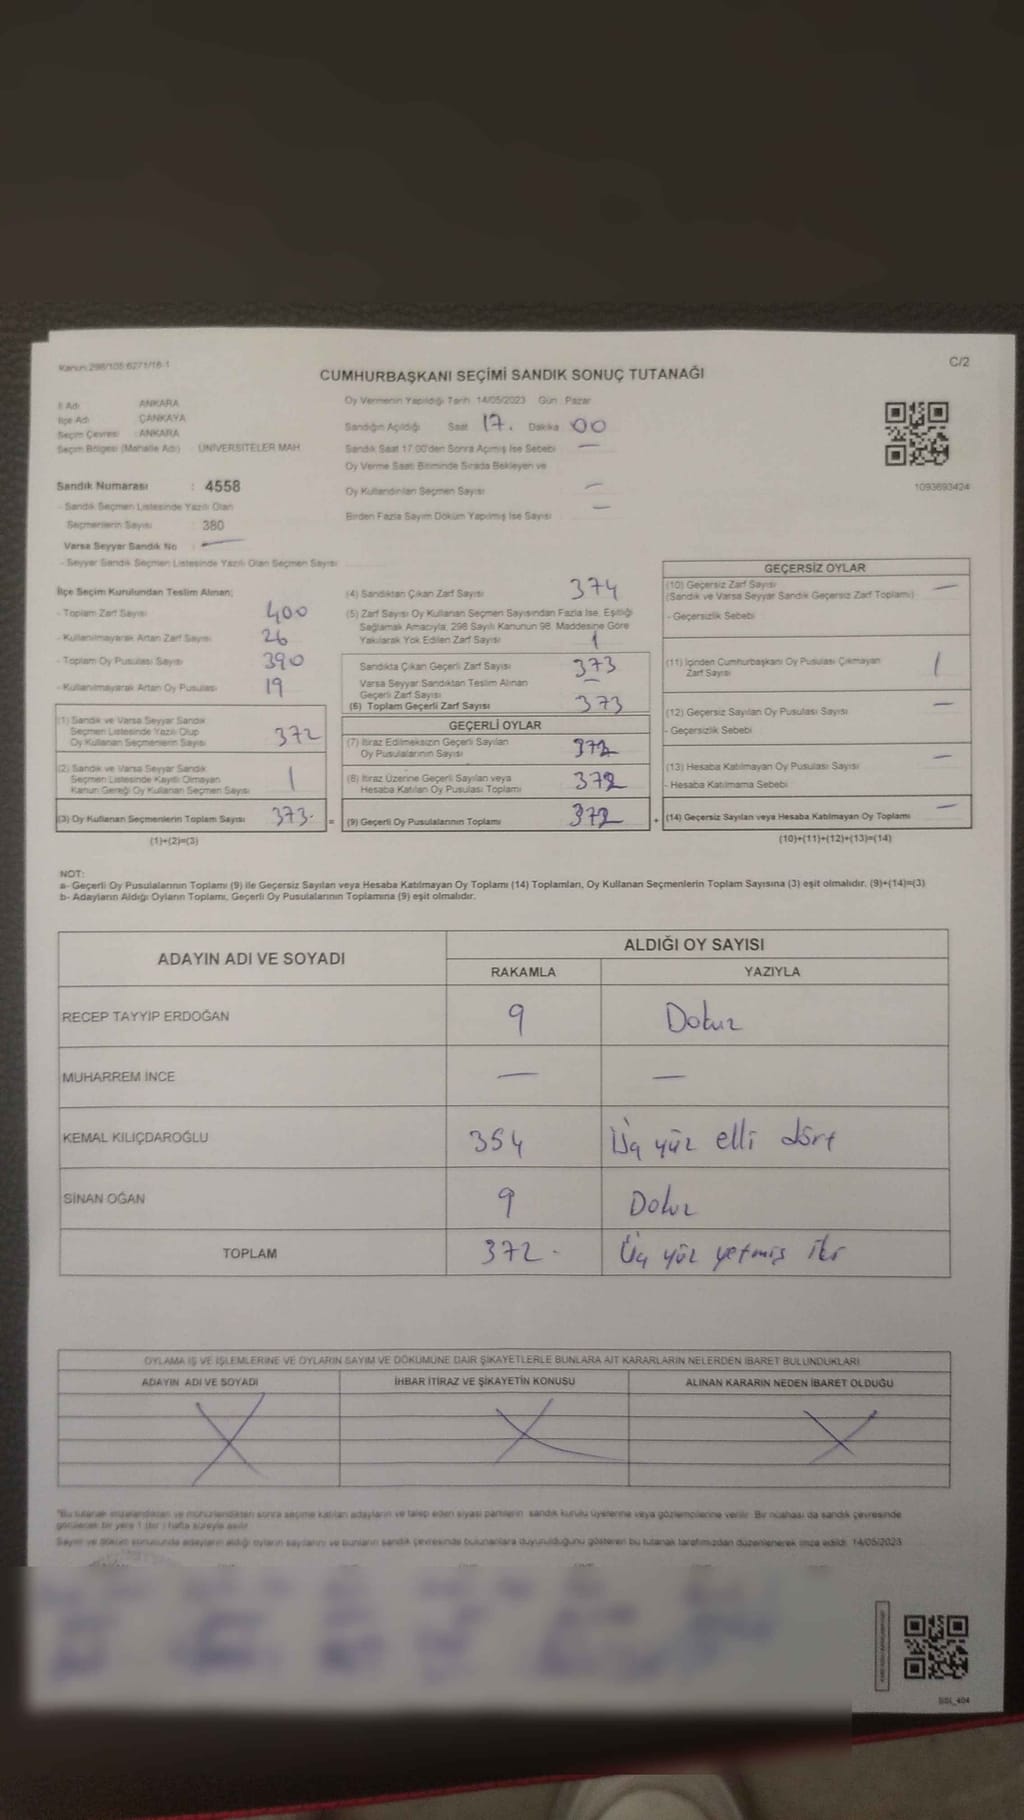 Kanun:298/105:6271/16-1
C/2
CUMHURBAŞKANI SEÇİMİ SANDIK SONUÇ TUTANAĞI
İl Adı : ANKARA
İlçe Adı : ÇANKAYA
Seçim Çevresi : ANKARA
Seçim Bölgesi (Mahalle Adı) : ÜNİVERSİTELER MAH
Sandık Numarası : 4558
- Sandık Seçmen Listesinde Yazılı Olan
Seçmenlerin Sayısı : 380
Varsa Seyyar Sandık No : —
- Seyyar Sandık Seçmen Listesinde Yazılı Olan Seçmen Sayısı
Oy Vermenin Yapıldığı Tarih 14/05/2023 Gün Pazar
Sandığın Açıldığı Saat 17. Dakika 00
Sandık Saat 17:00'den Sonra Açılmış İse Sebebi —
Oy Verme Saati Bitiminde Sırada Bekleyen ve
Oy Kullandırılan Seçmen Sayısı —
Birden Fazla Sayım Döküm Yapılmış İse Sayısı —
1093693424
İlçe Seçim Kurulundan Teslim Alınan;
- Toplam Zarf Sayısı 400
- Kullanılmayarak Artan Zarf Sayısı 26
- Toplam Oy Pusulası Sayısı 390
- Kullanılmayarak Artan Oy Pusulası 19
(1) Sandık ve Varsa Seyyar Sandık
Seçmen Listesinde Yazılı Olup
Oy Kullanan Seçmenlerin Sayısı 372
(2) Sandık ve Varsa Seyyar Sandık
Seçmen Listesinde Kayıtlı Olmayan
Kanun Gereği Oy Kullanan Seçmen Sayısı 1
(3) Oy Kullanan Seçmenlerin Toplam Sayısı 373.
(1)+(2)=(3)
(4) Sandıktan Çıkan Zarf Sayısı 374
(5) Zarf Sayısı Oy Kullanan Seçmen Sayısından Fazla İse, Eşitliği
Sağlamak Amacıyla; 298 Sayılı Kanunun 98. Maddesine Göre
Yakılarak Yok Edilen Zarf Sayısı 1
Sandıkta Çıkan Geçerli Zarf Sayısı 373
Varsa Seyyar Sandıktan Teslim Alınan
Geçerli Zarf Sayısı —
(6) Toplam Geçerli Zarf Sayısı 373
GEÇERLİ OYLAR
(7) İtiraz Edilmeksizin Geçerli Sayılan
Oy Pusulalarının Sayısı 372
(8) İtiraz Üzerine Geçerli Sayılan veya
Hesaba Katılan Oy Pusulası Toplamı 372
= (9) Geçerli Oy Pusulalarının Toplamı 372 +
GEÇERSİZ OYLAR
(10) Geçersiz Zarf Sayısı —
(Sandık ve Varsa Seyyar Sandık Geçersiz Zarf Toplamı)
- Geçersizlik Sebebi
(11) İçinden Cumhurbaşkanı Oy Pusulası Çıkmayan
Zarf Sayısı 1
(12) Geçersiz Sayılan Oy Pusulası Sayısı —
- Geçersizlik Sebebi
(13) Hesaba Katılmayan Oy Pusulası Sayısı —
- Hesaba Katılmama Sebebi
(14) Geçersiz Sayılan veya Hesaba Katılmayan Oy Toplamı —
(10)+(11)+(12)+(13)=(14)
NOT:
a- Geçerli Oy Pusulalarının Toplamı (9) ile Geçersiz Sayılan veya Hesaba Katılmayan Oy Toplamı (14) Toplamları, Oy Kullanan Seçmenlerin Toplam Sayısına (3) eşit olmalıdır. (9)+(14)=(3)
b- Adayların Aldığı Oyların Toplamı, Geçerli Oy Pusulalarının Toplamına (9) eşit olmalıdır.
ADAYIN ADI VE SOYADI ALDIĞI OY SAYISI
RAKAMLA YAZIYLA
RECEP TAYYİP ERDOĞAN 9 Dokuz
MUHARREM İNCE — —
KEMAL KILIÇDAROĞLU 354 Üç yüz elli dört
SİNAN OĞAN 9 Dokuz
TOPLAM 372 . Üç yüz yetmiş iki
OYLAMA İŞ VE İŞLEMLERİNE VE OYLARIN SAYIM VE DÖKÜMÜNE DAİR ŞİKAYETLERLE BUNLARA AİT KARARLARIN NELERDEN İBARET BULUNDUKLARI
ADAYIN ADI VE SOYADI İHBAR İTİRAZ VE ŞİKAYETİN KONUSU ALINAN KARARIN NEDEN İBARET OLDUĞU
*Bu tutanak imzalandıktan ve mühürlendikten sonra seçime katılan adayların ve talep eden siyasi partilerin sandık kurulu üyelerine veya gözlemcilerine verilir. Bir nüshası da sandık çevresinde
görülecek bir yere 1 (bir) hafta süreyle asılır.
Sayım ve döküm sonucunda adayların aldığı oyların sayılarını ve bunların sandık çevresinde bulunanlara duyurulduğunu gösteren bu tutanak tarafımızdan düzenlenerek imza edildi. 14/05/2023
SSI_404